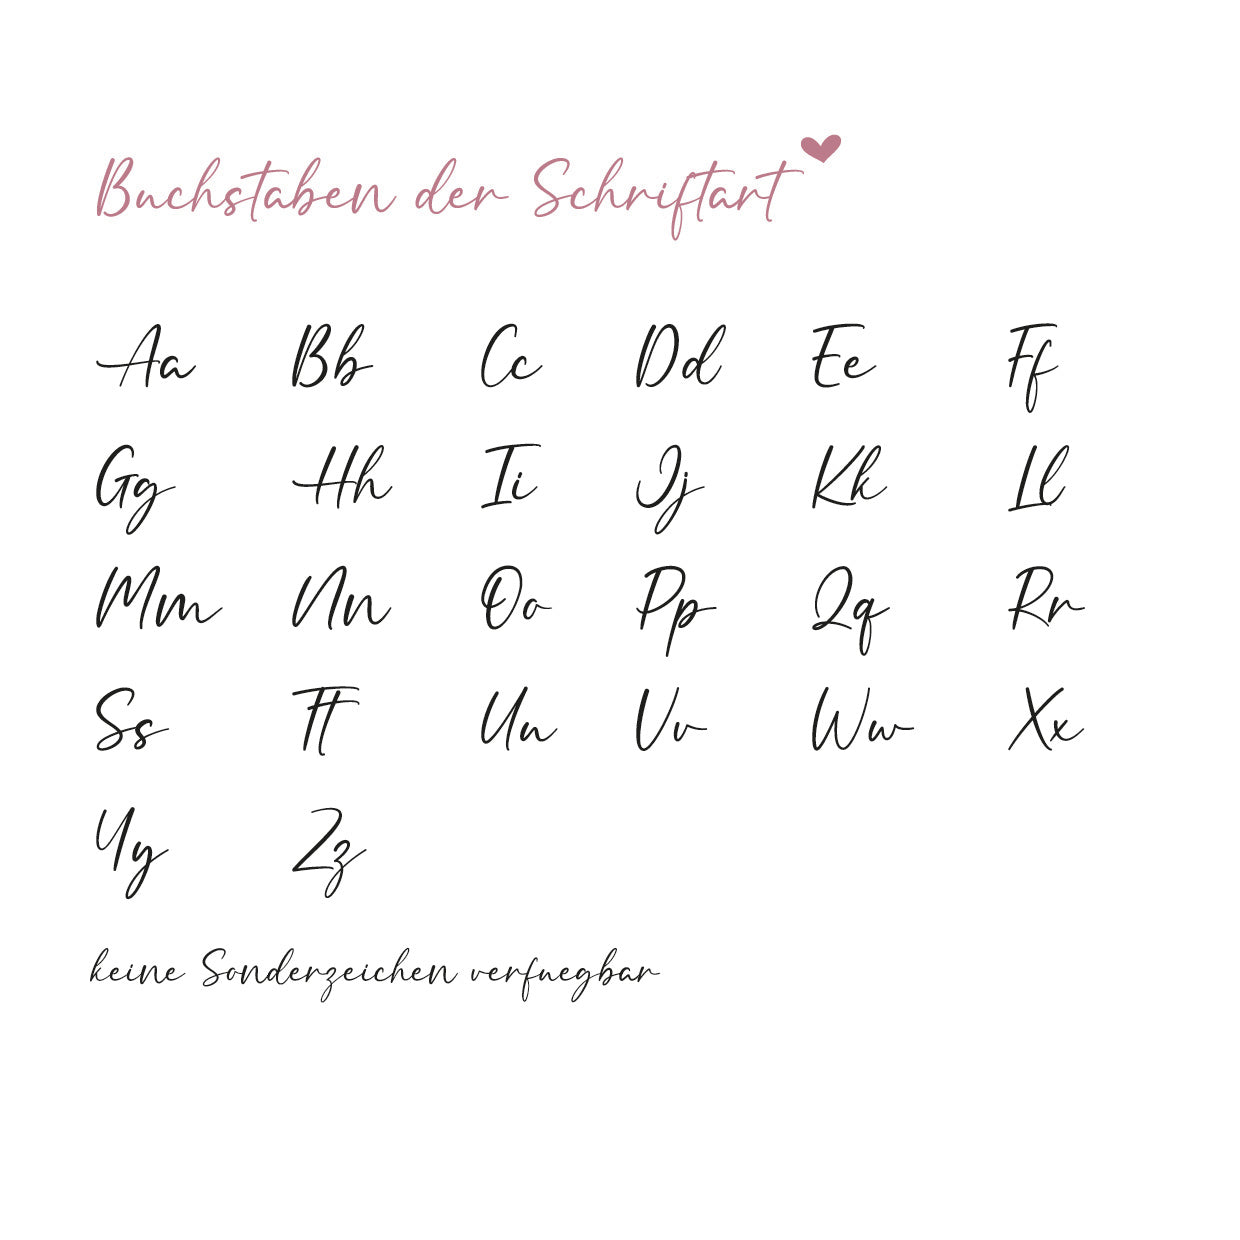 Buchstaben der Schriftart
Aa Bb Cc Dd Ee Ff
Gg Hh Ii Jj Kk Ll
Mm Nn Oo Pp Qq Rr
Ss Tt Uu Vv Ww Xx
Yy Zz
keine Sonderzeichen verfuegbar